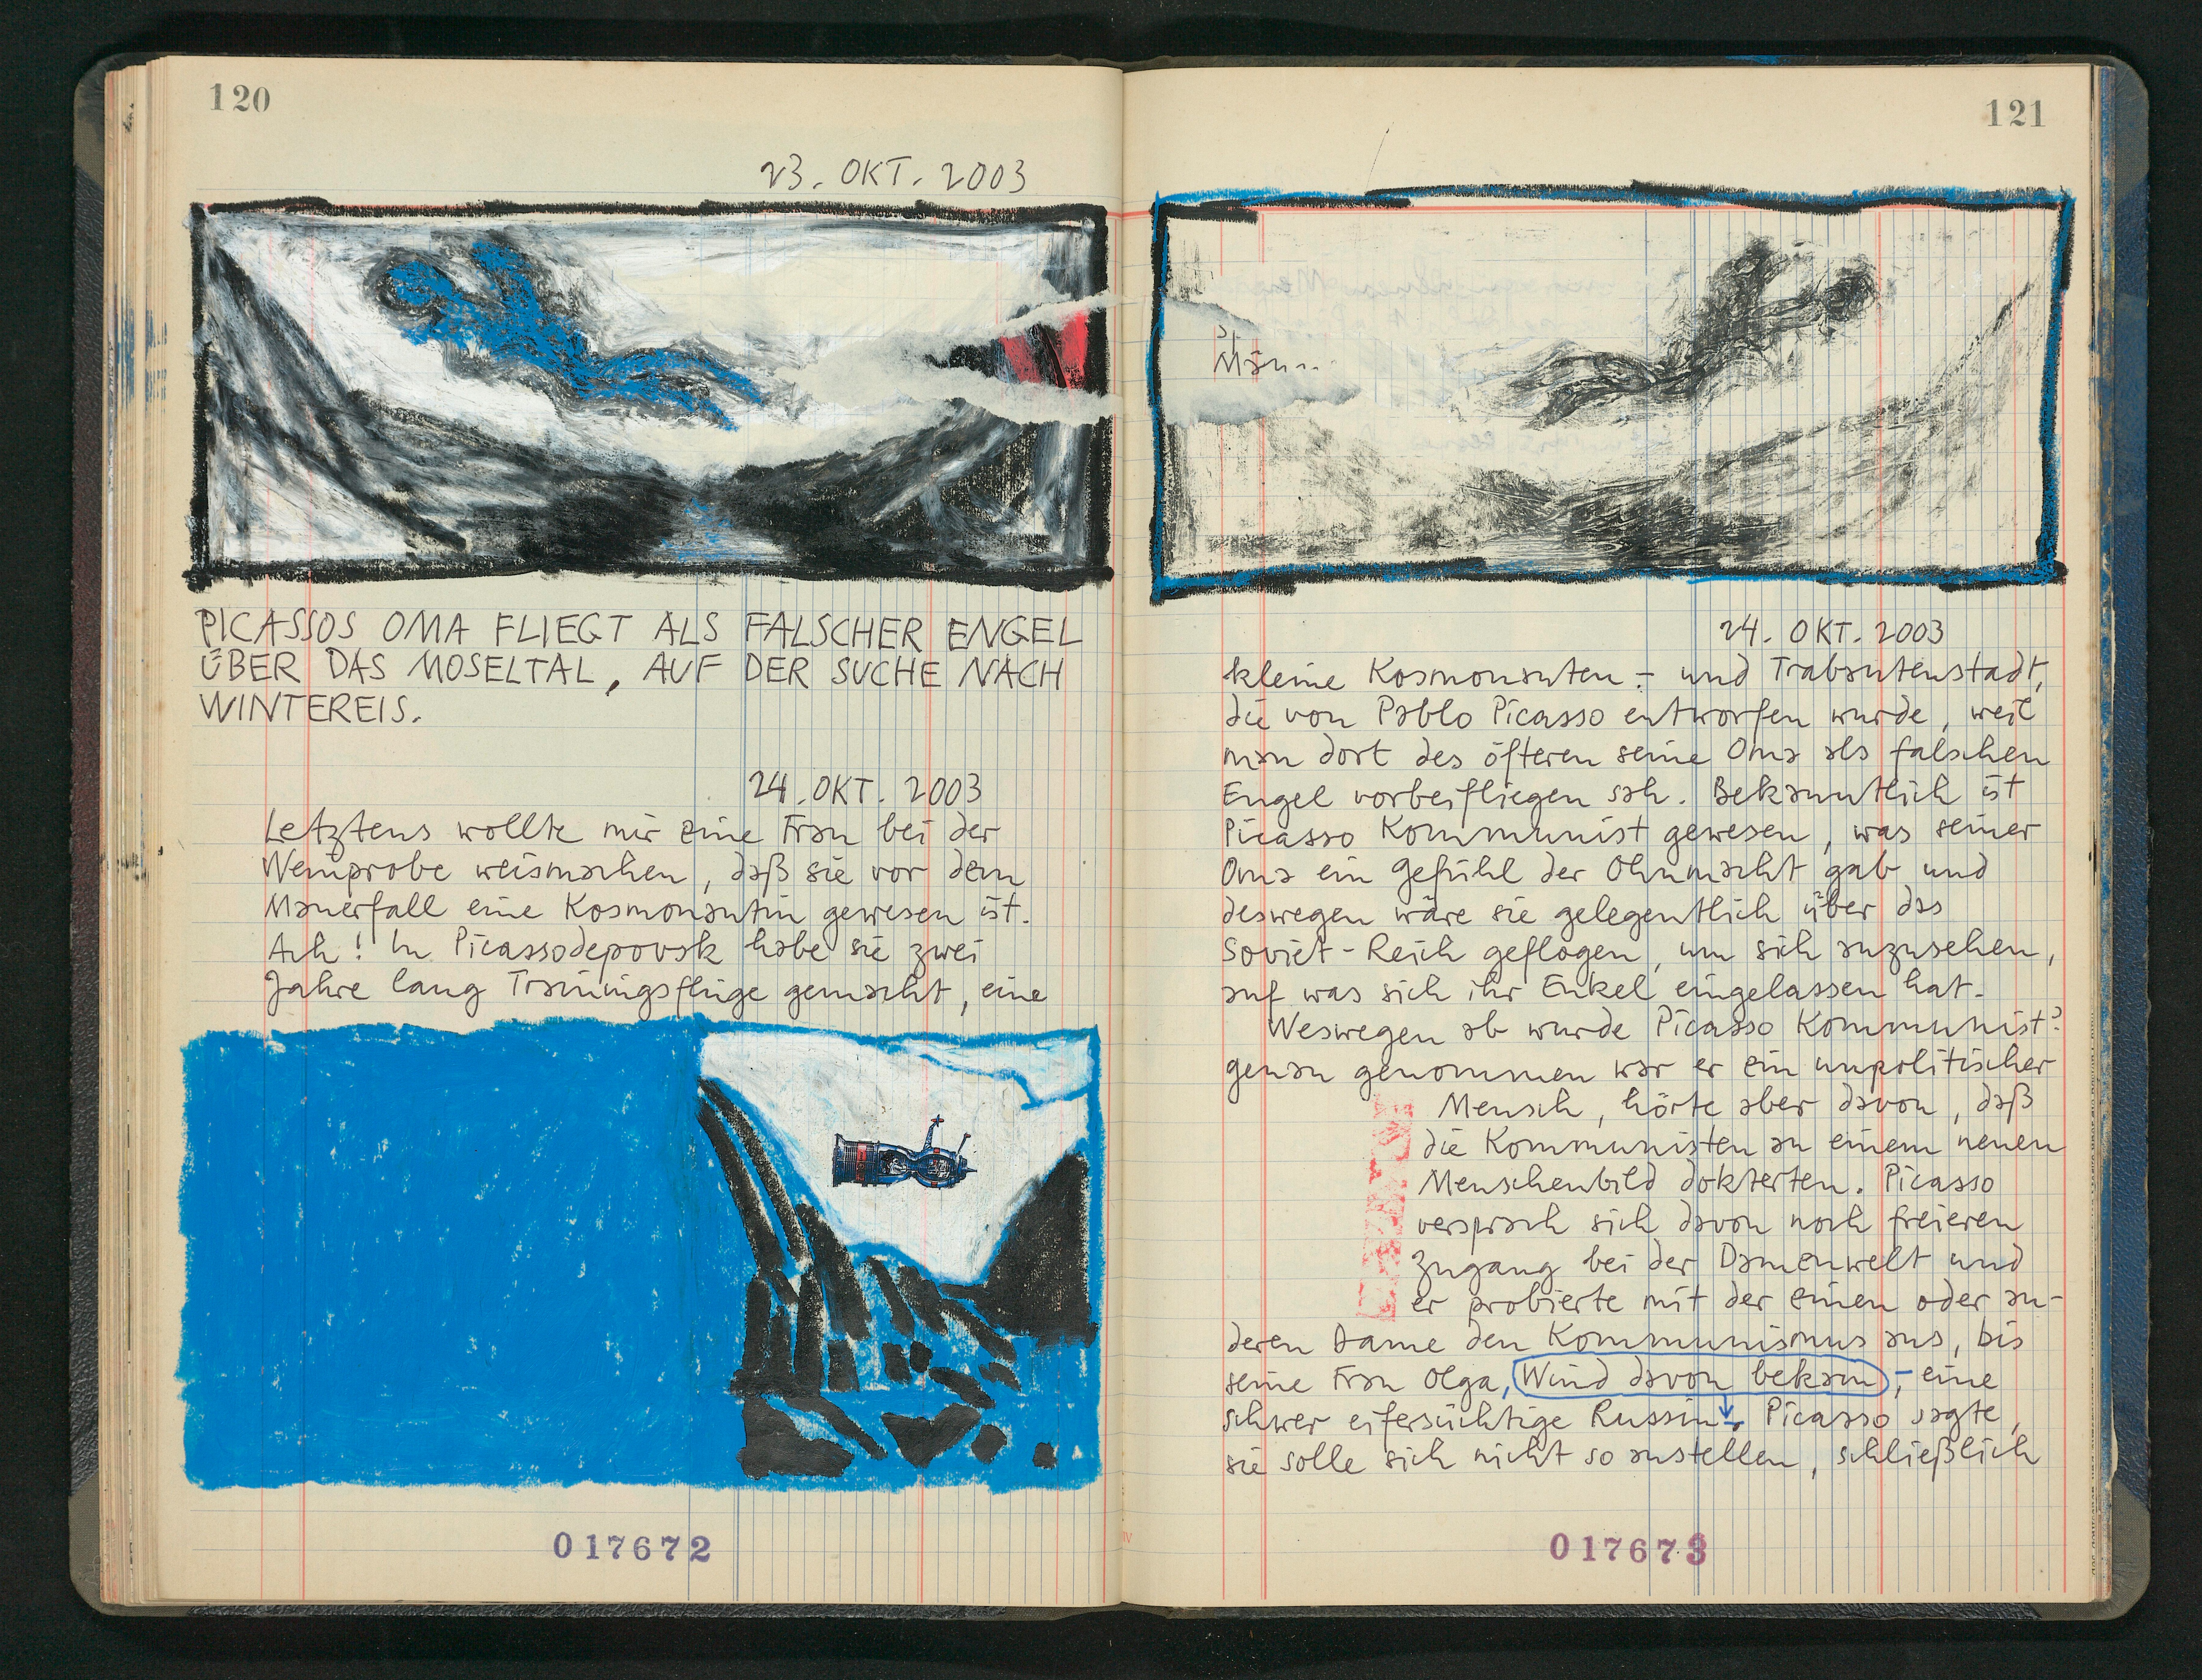 120
23. OKT. 2003
PICASSOS OMA FLIEGT ALS FALSCHER ENGEL
ÜBER DAS MOSELTAL, AUF DER SUCHE NACH
WINTEREIS.
24. OKT. 2003
Letztens wollte mir eine Frau bei der
Weinprobe weismachen, daß sie vor dem
Mauerfall eine Kosmonautin gewesen ist.
Ach! In Picassodepovsk habe sie zwei
Jahre lang Trainingsflüge gemacht, eine
017672
121
24. OKT. 2003
kleine Kosmonauten- und Trabantenstadt,
die von Pablo Picasso entworfen wurde, weil
man dort des öfteren seine Oma als falschen
Engel vorbeifliegen sah. Bekanntlich ist
Picasso Kommunist gewesen, was seiner
Oma ein Gefühl der Ohnmacht gab und
deswegen wäre sie gelegentlich über das
Soviet-Reich geflogen, um sich anzusehen,
auf was sich ihr Enkel eingelassen hat.
Weswegen ab wurde Picasso Kommunist?
genau genommen war er ein unpolitischer
Mensch, hörte aber davon, daß
die Kommunisten an einem neuen
Menschenbild dokterten. Picasso
versprach sich davon noch freieren
Zugang bei der Damenwelt und
er probierte mit der einen oder an-
deren Dame den Kommunismus aus, bis
seine Frau Olga, Wind davon bekam, - eine
schwer eifersüchtige Russin. Picasso sagte,
sie solle sich nicht so anstellen, schließlich
017673